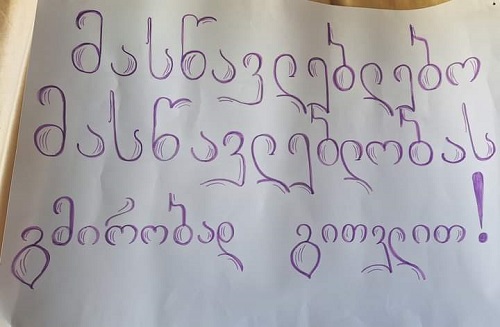 მასწავლებლებო
მასწავლებლობას
გმირობად გითვლით!